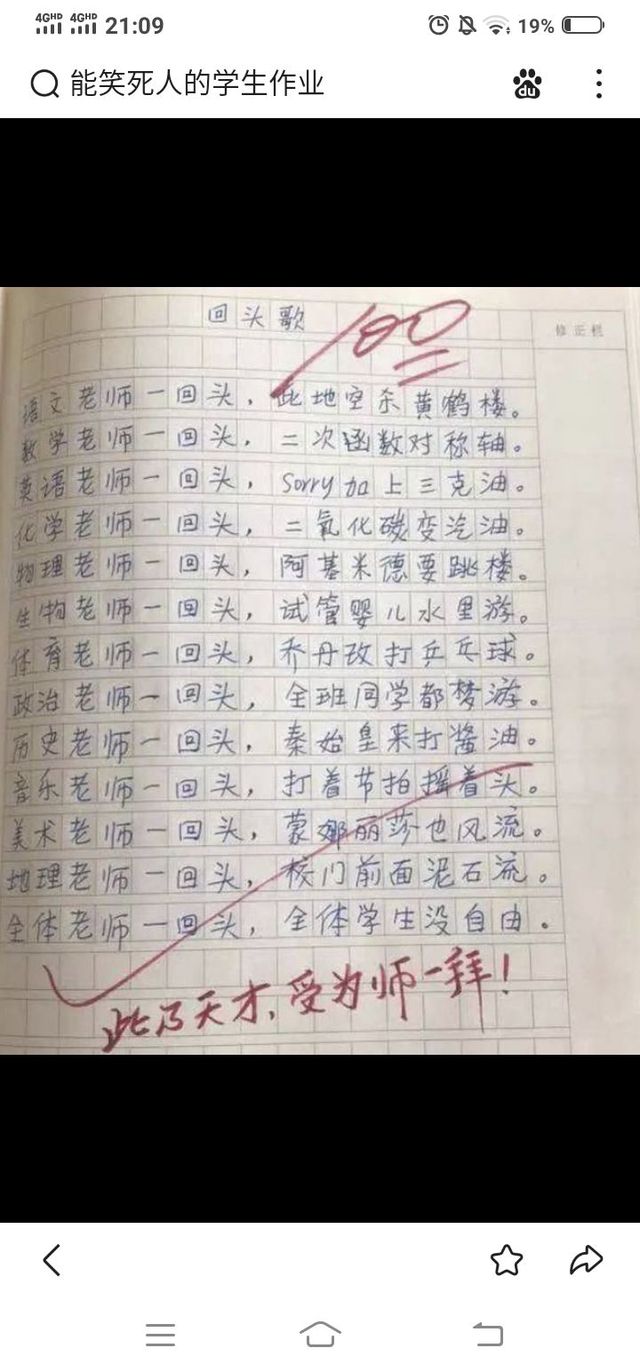 4GHD 4GHD 21:09 19%
能笑死人的学生作业 du
回头歌 100
修正栏
语文老师一回头，此地空杀黄鹤楼。
数学老师一回头，二次函数对称轴。
英语老师一回头，Sorry加上三克油。
化学老师一回头，二氧化碳变汽油。
物理老师一回头，阿基米德要跳楼。
生物老师一回头，试管婴儿水里游。
体育老师一回头，乔丹改打乒乓球。
政治老师一回头，全班同学都梦游。
历史老师一回头，秦始皇来打酱油。
音乐老师一回头，打着节拍摇着头。
美术老师一回头，蒙娜丽莎也风流。
地理老师一回头，校门前面泥石流。
全体老师一回头，全体学生没自由.
此乃天才，受为师一拜！